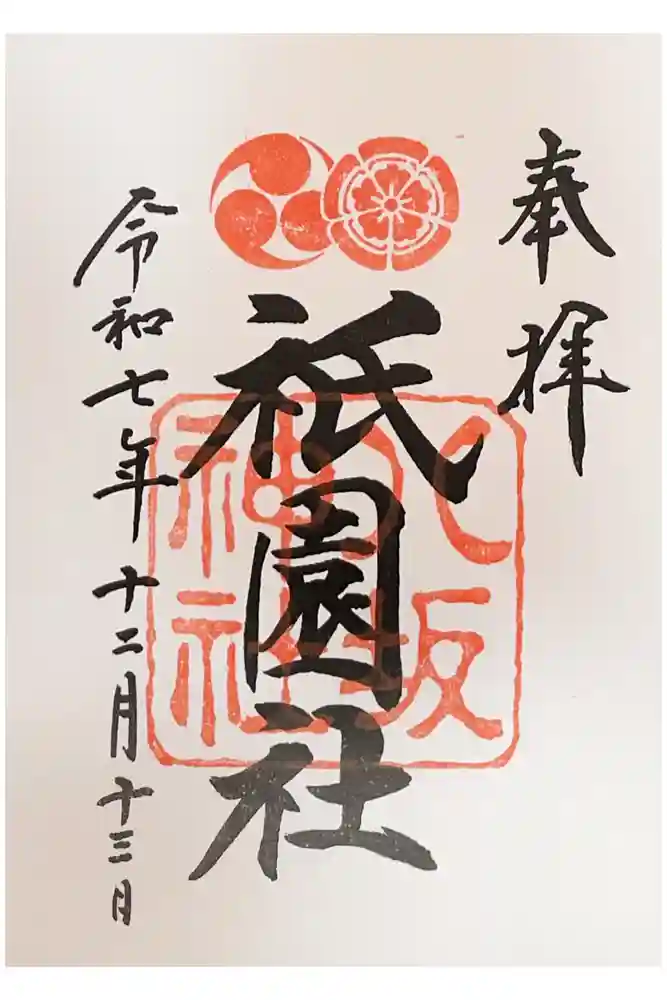 奉拝
祇園社
八坂
神社
令和七年十二月十三日